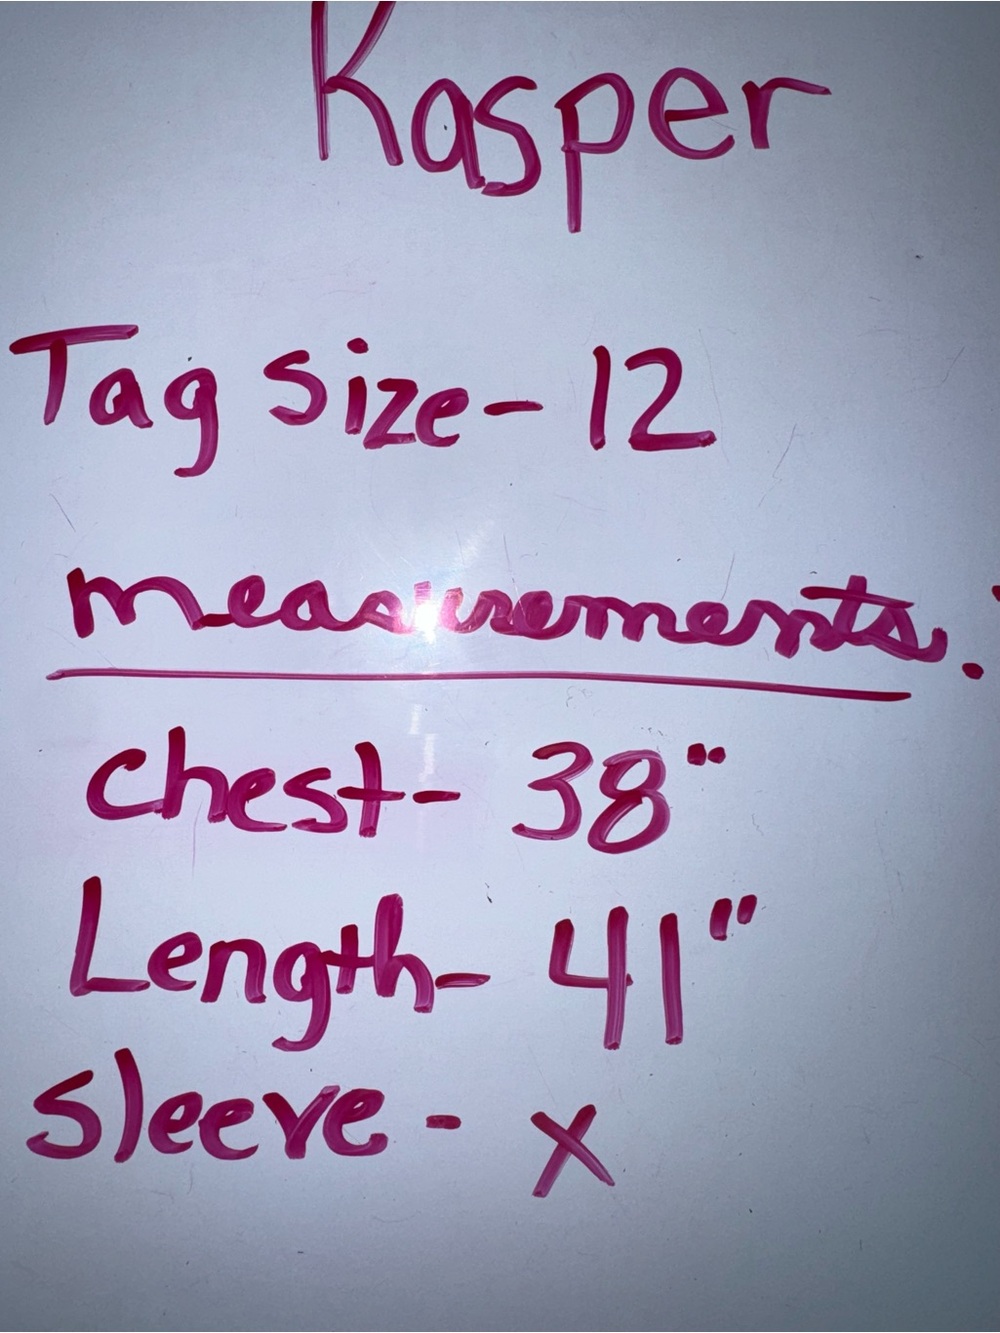 Kasper
Tag Size- 12
measurements:
Chest- 38"
Length- 41"
Sleeve - X